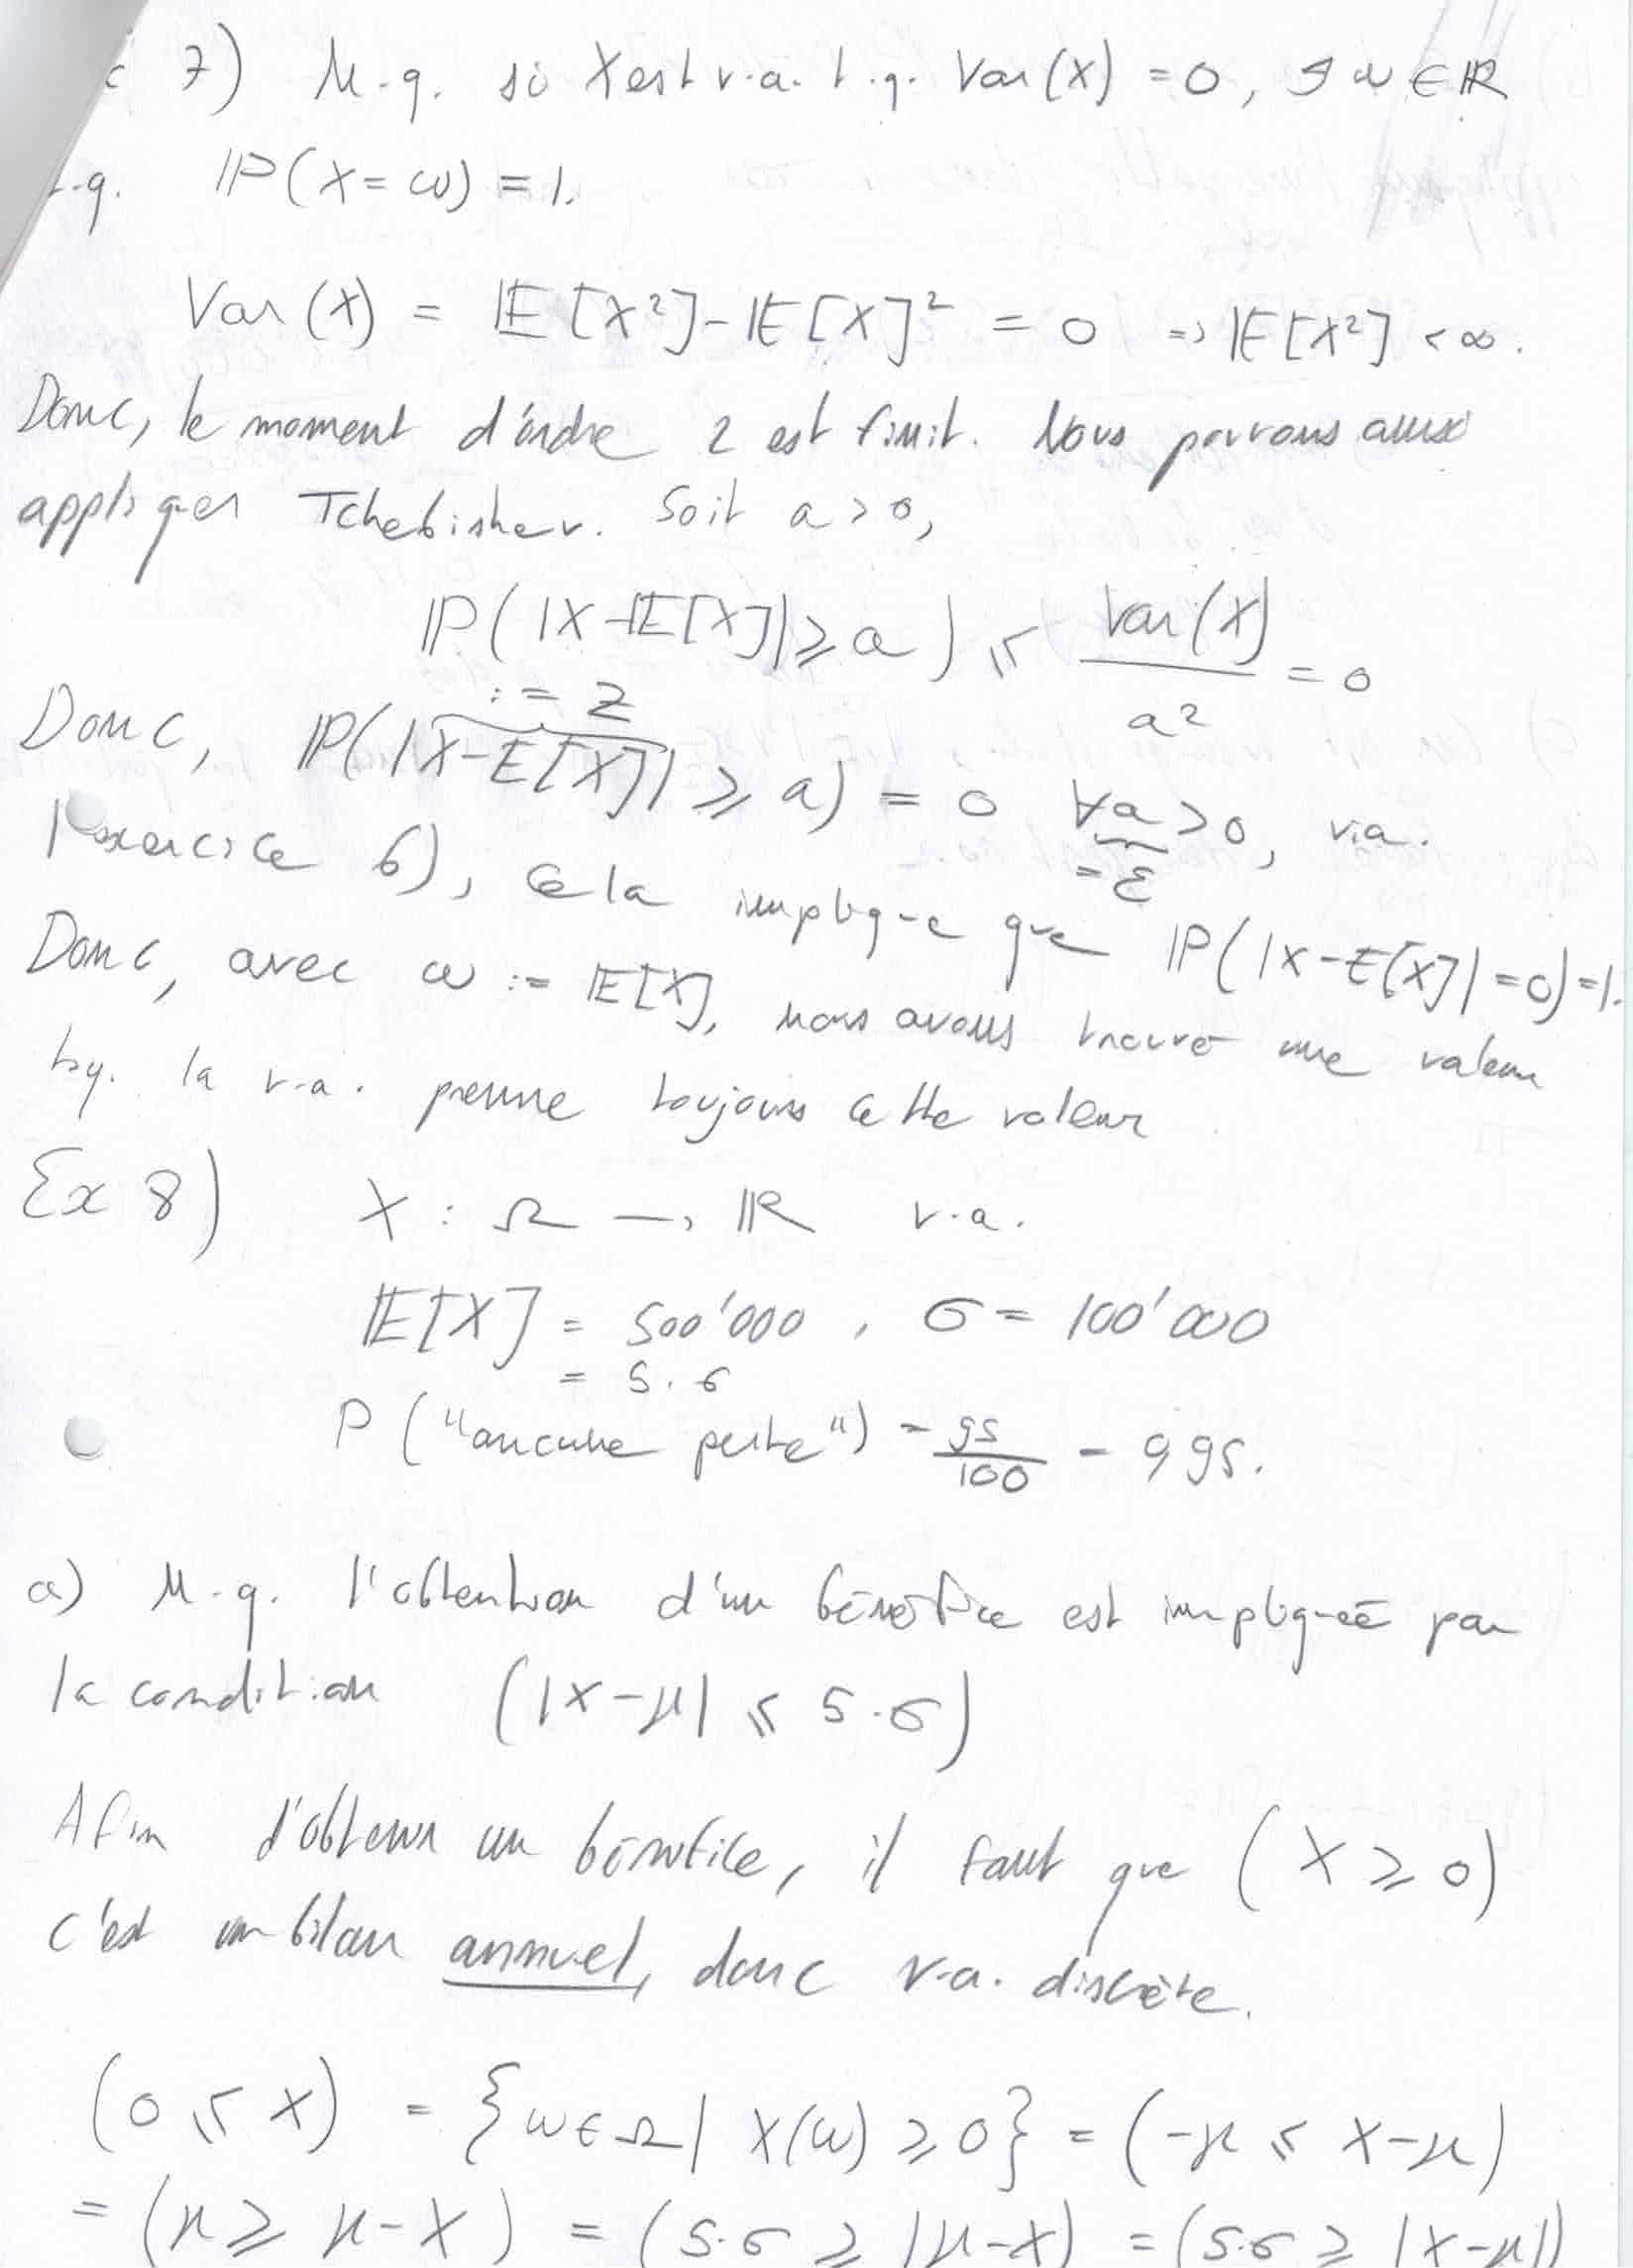 c 7) M.q. si X est v.a. t.q. Var(X) = 0, ∃ ω ∈ ℝ
t.q. ℙ(X = ω) = 1.
Var(X) = 𝔼[X²] - 𝔼[X]² = 0 => 𝔼[X²] < ∞.
Donc, le moment d'ordre 2 est finit. Nous pouvons aussi
appliquer Tchebishev. Soit a > 0,
ℙ(|X - 𝔼[X]| ≥ a) ≤ Var(X) / a² = 0
:= Z
Donc, ℙ(|X - E[X]| ≥ a) = 0 ∀ a > 0, via
= ε
l'exercice 6), cela implique que ℙ(|X - E[X]| = 0) = 1.
Donc, avec ω := 𝔼[X], nous avons trouvé une valeur
tq. la v.a. prenne toujours cette valeur
Ex 8) X : Ω → ℝ v.a.
𝔼[X] = 500'000, σ = 100'000
= 5.σ
P("aucune perte") = 95/100 = 0,95.
a) M.q. l'obtention d'un bénéfice est impliquée par
la condition (|X - μ| ≤ 5.σ)
Afin d'obtenir un bénéfice, il faut que (X ≥ 0)
c'est un bilan annuel, donc v.a. discrète.
(0 ≤ X) = {ω ∈ Ω | X(ω) ≥ 0} = (-μ ≤ X - μ)
= (μ ≥ μ - X) = (5.σ ≥ |μ - X|) = (5.σ ≥ |X - μ|)